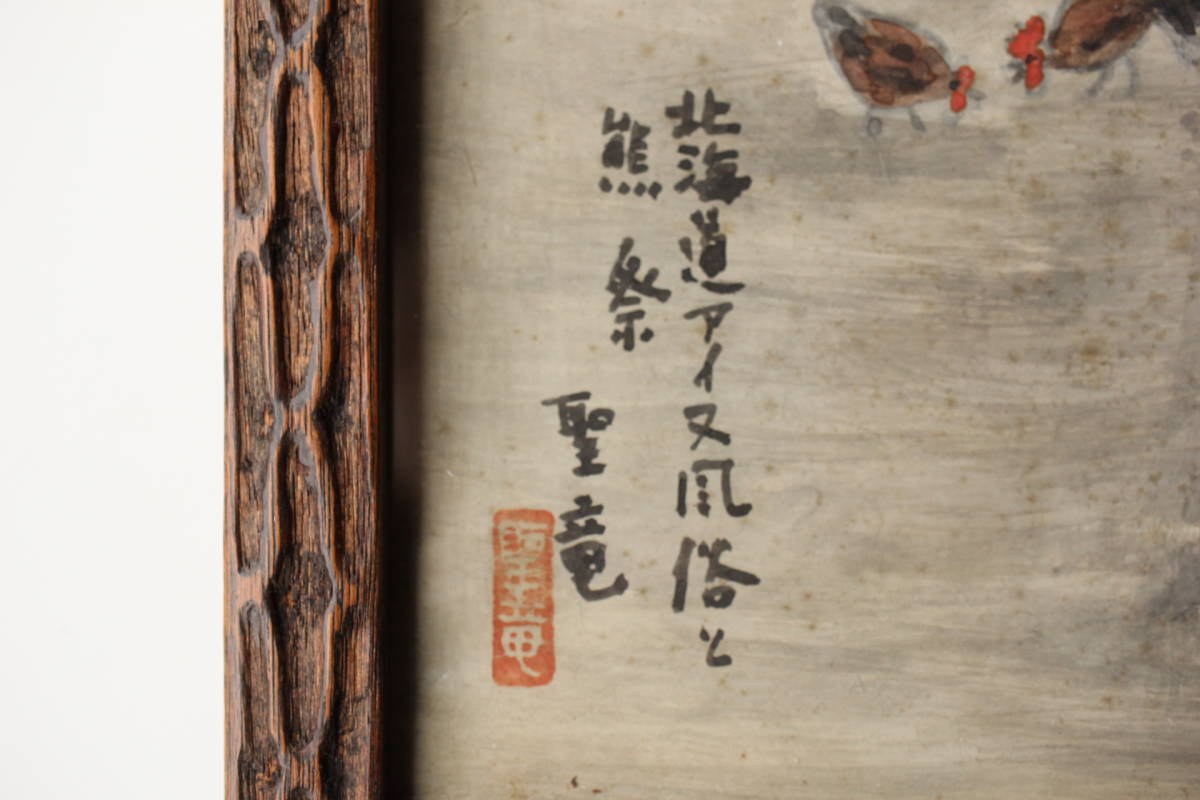 北海道アイヌ風俗と
熊祭
聖竜
聖竜